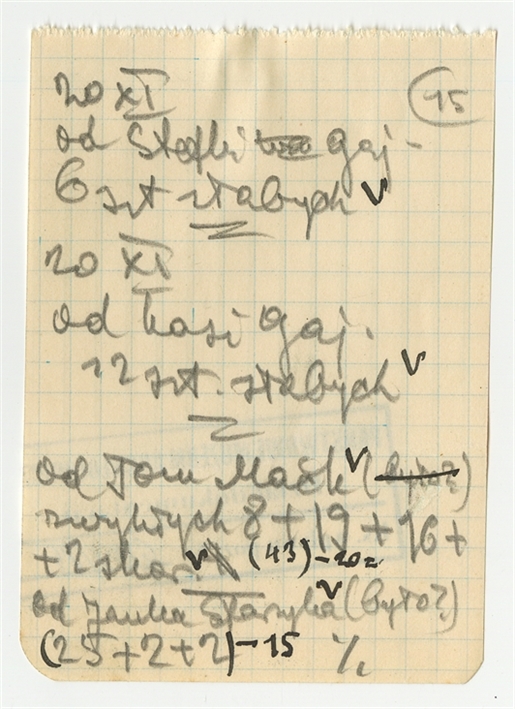 20 XI 15
od Stefki gaj-
6 szt słabych V
20 XI
od Kasi gaj.
12 szt. słabych V
od Tom Maćk V (było?)
zwykłych 8 + 19 + 16 +
+ 2 skor. V (43) - 20=
od Janka Staszyka V (było?)
(25 + 2 + 2) - 15 %